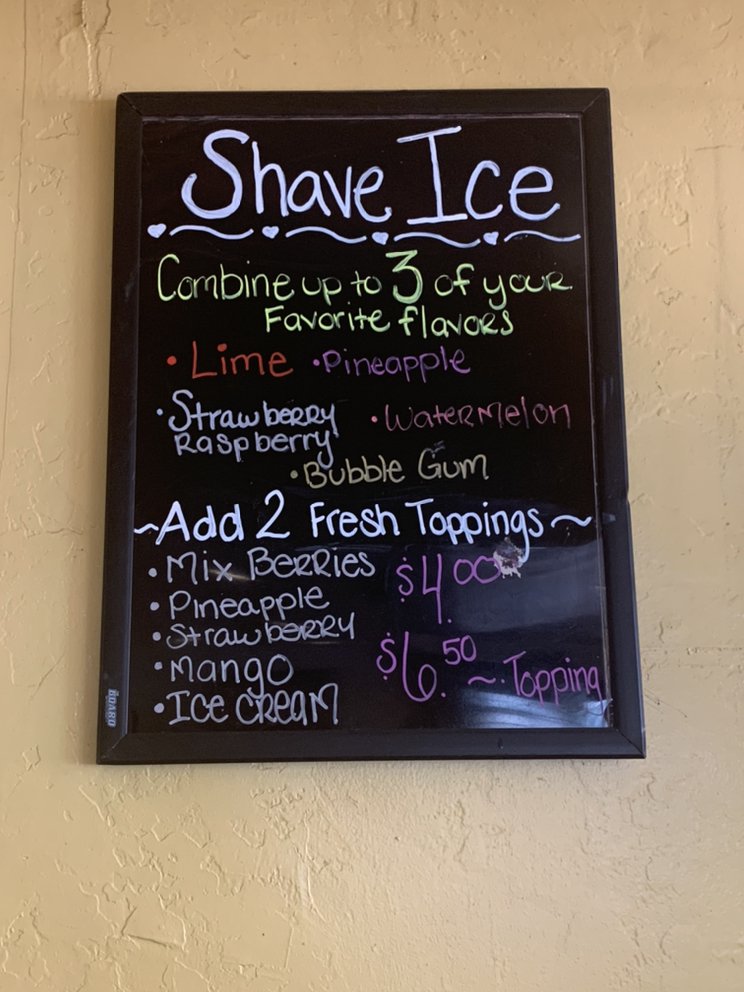 Shave Ice
Combine up to 3 of your
Favorite flavors
• Lime • Pineapple
• Strawberry • Watermelon
Raspberry
• Bubble Gum
~Add 2 Fresh Toppings~
• Mix Berries $4.00
• Pineapple
• Strawberry
• Mango $6.50 ~ Topping
• Ice cream